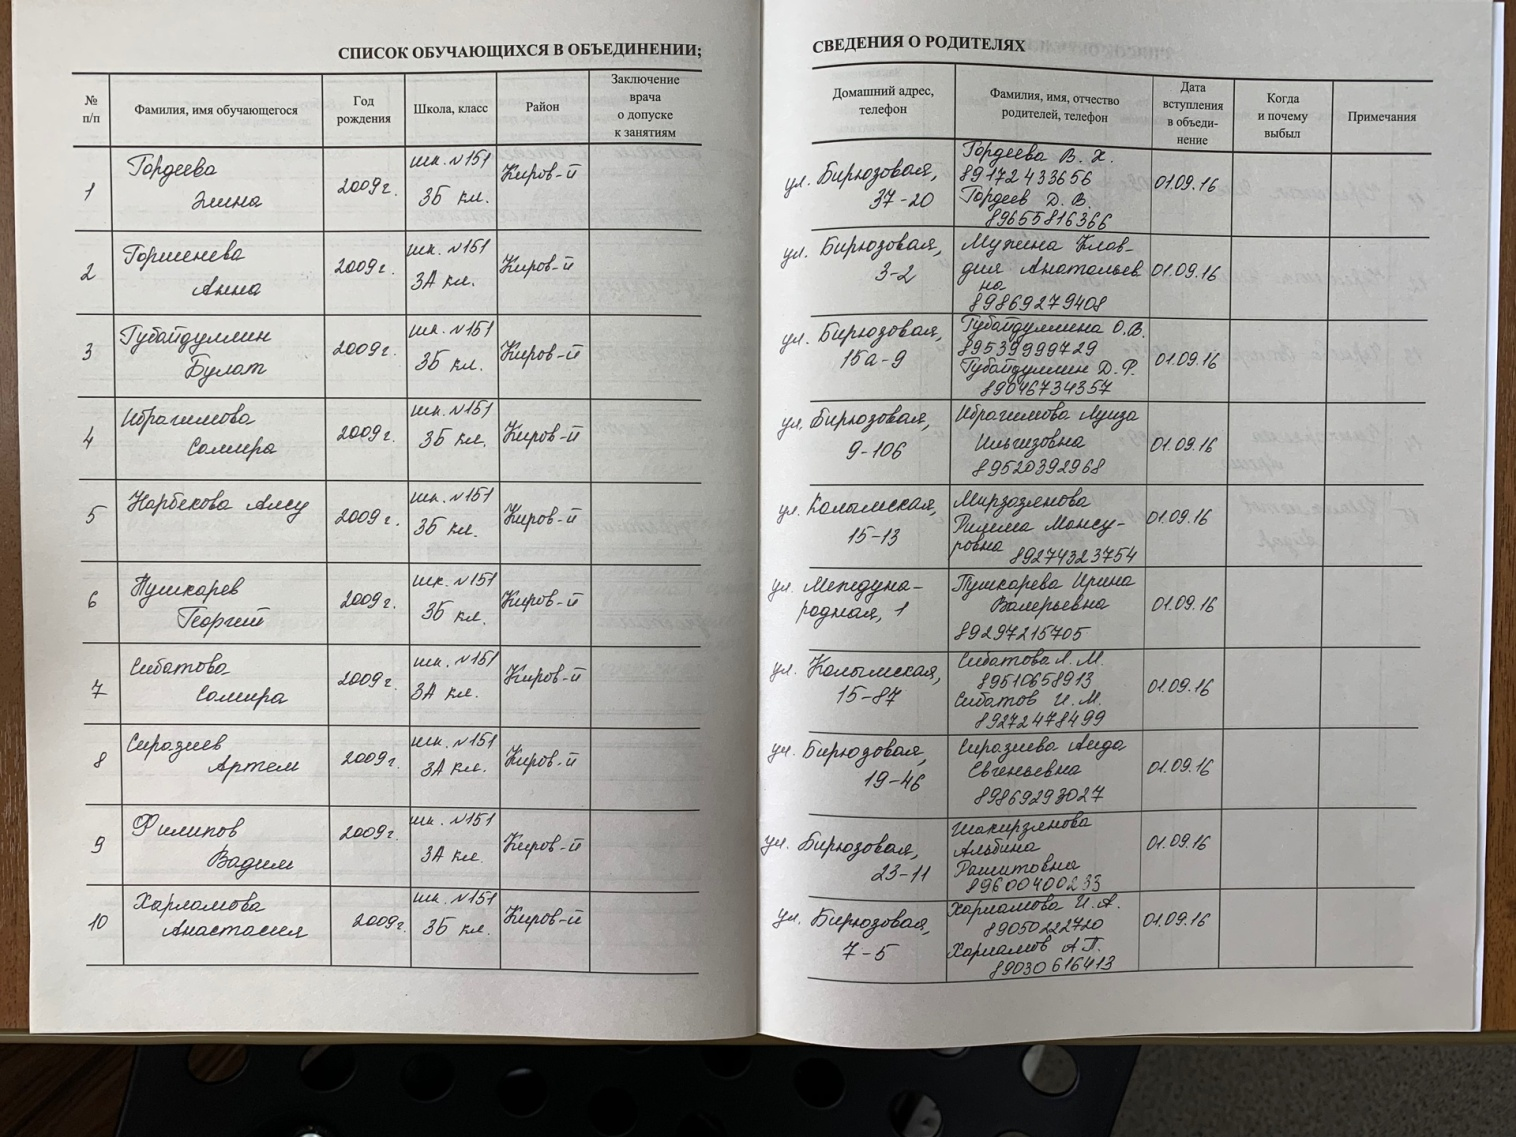 СПИСОК ОБУЧАЮЩИХСЯ В ОБЪЕДИНЕНИИ;
№ п/п
Фамилия, имя обучающегося
Год рождения
Школа, класс
Район
Заключение врача о допуске к занятиям
1
Гордеева
Элина
2009г.
шк. №151
3Б кл.
Киров-й
2
Горшенева
Анна
2009г.
шк. №151
3А кл.
Киров-й
3
Губайдуллин
Булат
2009г.
шк. №151
3Б кл.
Киров-й
4
Ибрагимова
Самира
2009г.
шк. №151
3Б кл.
Киров-й
5
Нарбекова Алсу
2009г.
шк. №151
3Б кл.
Киров-й
6
Пушкарев
Георгий
2009г.
шк. №151
3Б кл.
Киров-й
7
Сибатова
Самира
2009г.
шк. №151
3А кл.
Киров-й
8
Сиразиев
Артем
2009г.
шк. №151
3А кл.
Киров-й
9
Филипов
Вадим
2009г.
шк. №151
3А кл.
Киров-й
10
Харламова
Анастасия
2009г.
шк. №151
3Б кл.
Киров-й
СВЕДЕНИЯ О РОДИТЕЛЯХ
Домашний адрес, телефон
Фамилия, имя, отчество родителей, телефон
Дата вступления в объеди-нение
Когда и почему выбыл
Примечания
ул. Бирюзовая,
37-20
Гордеева В. Х.
89172433656
Гордеев Д. В.
89655816366
01.09.16
ул. Бирюзовая,
3-2
Мухина Клав-
дия Анатольев
на
89869279408
01.09.16
ул. Бирюзовая,
15а-9
Губайдуллина О.В.
89539999729
Губайдуллин Д. Ф.
89046734357
01.09.16
ул. Бирюзовая,
9-106
Ибрагимова Луиза
Ильгизовна
89520392968
01.09.16
ул. Колымская,
15-13
Мирзазянова
Римма Мансу-
ровна 89274323754
01.09.16
ул. Междуна-
родная, 1
Пушкарева Ирина
Валерьевна
89297215705
01.09.16
ул. Колымская,
15-87
Сибатова Л. М.
89510658913
Сибатов И. М.
89272478499
01.09.16
ул. Бирюзовая,
19-46
Сиразиева Аида
Евгеньевна
89869293027
01.09.16
ул. Бирюзовая,
23-11
Шакирзянова
Альбина
Рашитовна
89600400233
01.09.16
ул. Бирюзовая,
7-5
Харламова И. А.
89050222720
Харламов А.П.
89030616413
01.09.16